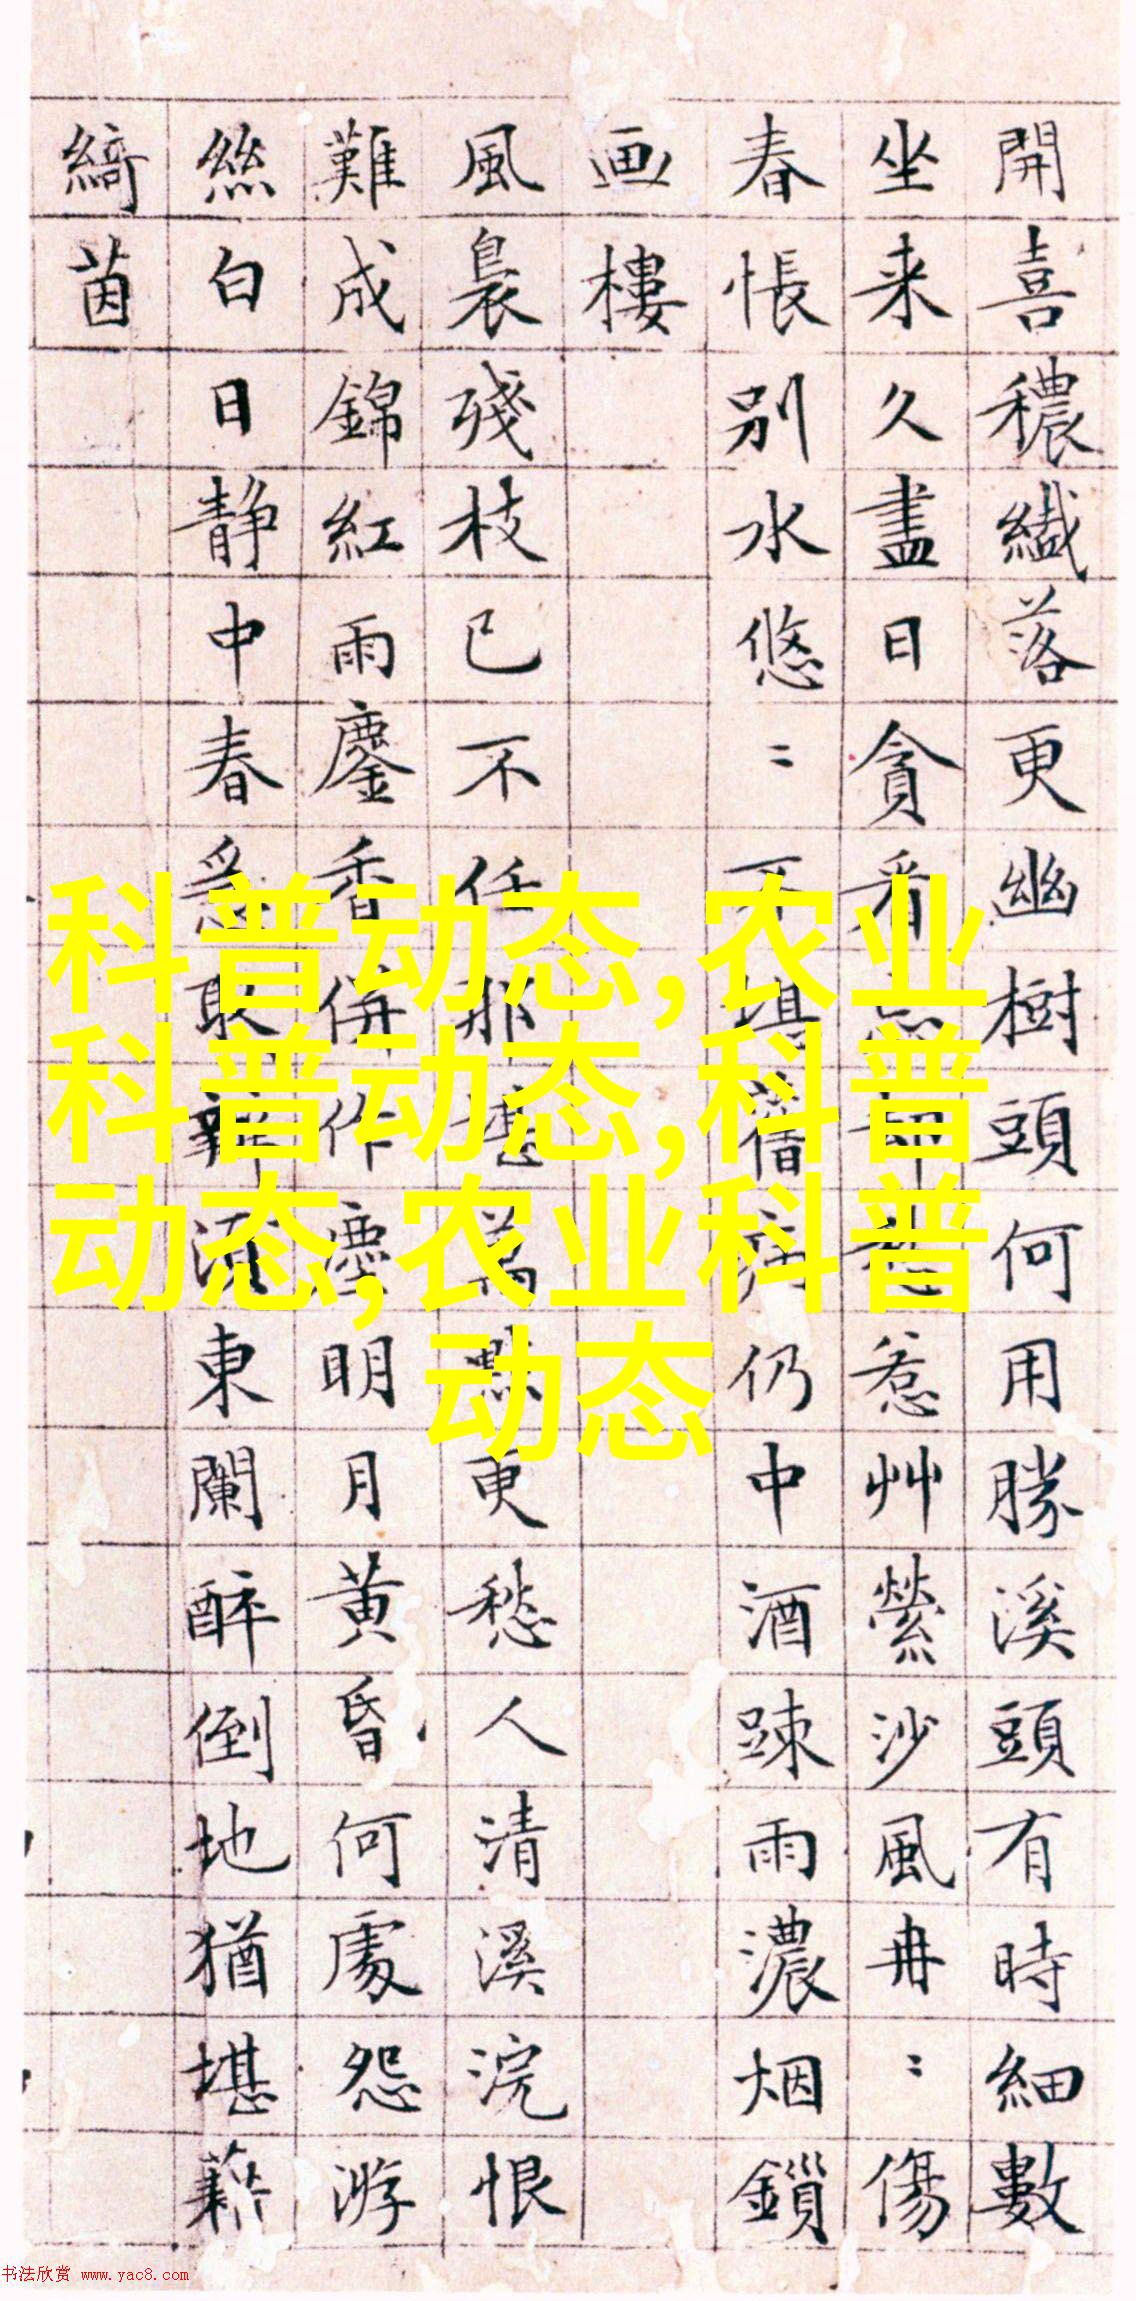 開喜穠纖落更幽樹頭何用勝溪頭有時細數
坐来久盡日貪看忘却愁惹艸縈沙風冉〻傷
春悵別水悠〻不填舊病仍中酒踈雨濃烟鎖
画樓
風裊殘枝已不任那堪萬點更愁人清溪浣恨
難成錦紅雨鏖香併作塵明月黄昏何處怨游
絲白日静中春急取新酒東闌醉倒地猶堪藉
綺茵
科普动态,农业
科普动态,科普
动态,农业科普
动态
书法欣赏 www.yac8.com